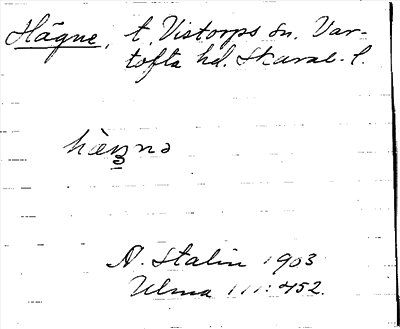 Hägne, t. Vistorps sn. Var-
tofta hd. Skarab. l.
hæŋnə
N. Stalin 1903
Ulma 111:452.